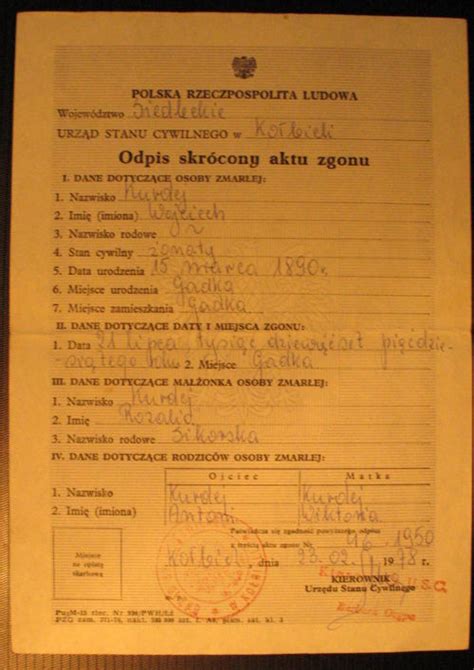 POLSKA RZECZPOSPOLITA LUDOWA
Województwo Siedleckie
URZĄD STANU CYWILNEGO w Kołbieli
Odpis skrócony aktu zgonu
I. DANE DOTYCZĄCE OSOBY ZMARŁEJ:
1. Nazwisko Kurdej
2. Imię (imiona) Wojciech
3. Nazwisko rodowe
4. Stan cywilny żonaty
5. Data urodzenia 15 marca 1890r.
6. Miejsce urodzenia Gadka
7. Miejsce zamieszkania Gadka
II. DANE DOTYCZĄCE DATY I MIEJSCA ZGONU:
1. Data 21 lipca tysiąc dziewięćset pięćdzie-
siątego roku 2. Miejsce Gadka
III. DANE DOTYCZĄCE MAŁŻONKA OSOBY ZMARŁEJ:
1. Nazwisko Kurdej
2. Imię Rozalia
3. Nazwisko rodowe Sikorska
IV. DANE DOTYCZĄCE RODZICÓW OSOBY ZMARŁEJ:
Ojciec Matka
1. Nazwisko Kurdej Kurdej
2. Imię (imiona) Antoni Wiktoria
Poświadcza się zgodność powyższego odpisu
z treścią aktu zgonu Nr 1950
Kołbiel, dnia 23.02. 1978 r.
Miejsce
na opłatę
skarbową
KIEROWNIK
Urzędu Stanu Cywilnego
U.S.C.